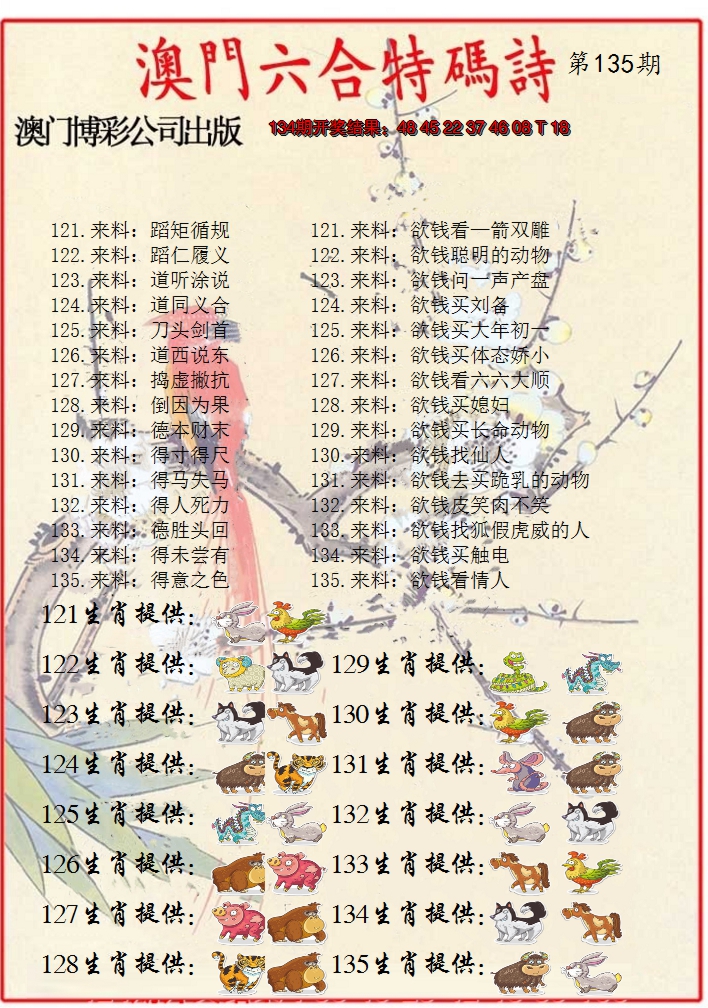 澳門六合特碼詩 第135期
澳门博彩公司出版 134期开奖结果：48 45 22 37 46 08 T 18
121.来料：蹈矩循规 121.来料：欲钱看一箭双雕
122.来料：蹈仁履义 122.来料：欲钱聪明的动物
123.来料：道听涂说 123.来料：欲钱问一声产盘
124.来料：道同义合 124.来料：欲钱买刘备
125.来料：刀头剑首 125.来料：欲钱买大年初一
126.来料：道西说东 126.来料：欲钱买体态娇小
127.来料：捣虚撇抗 127.来料：欲钱看六六大顺
128.来料：倒因为果 128.来料：欲钱买媳妇
129.来料：德本财末 129.来料：欲钱买长命动物
130.来料：得寸得尺 130.来料：欲钱找仙人
131.来料：得马失马 131.来料：欲钱去买跪乳的动物
132.来料：得人死力 132.来料：欲钱皮笑肉不笑
133.来料：德胜头回 133.来料：欲钱找狐假虎威的人
134.来料：得未尝有 134.来料：欲钱买触电
135.来料：得意之色 135.来料：欲钱看情人
121生肖提供：
122生肖提供： 129生肖提供：
123生肖提供： 130生肖提供：
124生肖提供： 131生肖提供：
125生肖提供： 132生肖提供：
126生肖提供： 133生肖提供：
127生肖提供： 134生肖提供：
128生肖提供： 135生肖提供：